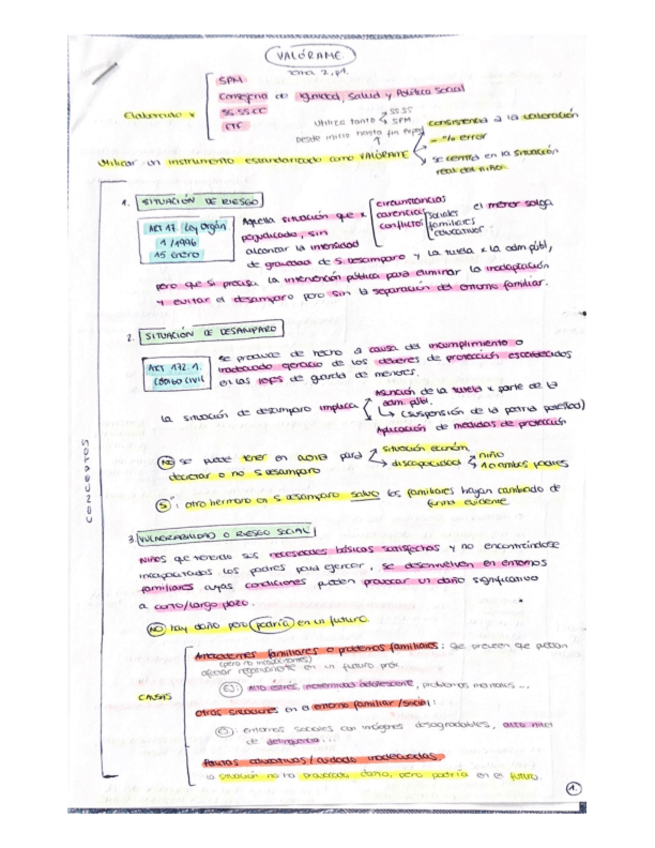 VALÓRAME
Tema 2, p1.
SPM
Consejería de Igualdad, Salud y Política Social
SS.SS.CC
ETF
Elaborado x
Utiliza tanto SS.SS
SPM
Desde inicio hasta fin
consistencia a la valoración
- % error
se centra en la situación
real del niño.
Utilizar un instrumento estandarizado como VALÓRAME
CONCEPTOS
1. SITUACIÓN DE RIESGO
ART 17. Ley Orgán
1/1996
15 enero
Aquella situación que x circunstancias
carencias
conflictos
sociales
familiares
educativos
el menor salga
perjudicado, sin
alcanzar la intensidad
de gravedad de S. Desamparo y la tutela x la adm públ,
pero que sí precisa la intervención pública para eliminar la inadaptación
y evitar el desamparo pero sin la separación del entorno familiar.
2. SITUACIÓN DE DESAMPARO
ART 172.1.
CÓDIGO CIVIL
se produce de hecho a causa del incumplimiento o
inadecuado ejercicio de los deberes de protección establecidos
en las leyes de guarda de menores.
La situación de desamparo implica
Asunción de la tutela x parte de la
adm. públ.
(suspensión de la patria potestad)
Aplicación de medidas de protección
NO se puede tener en cuenta para
decretar o no S. desamparo
situación económ.
discapacidad
niño
1 o ambos padres
SÍ : otro hermano en S. desamparo salvo los familiares hayan cambiado de
forma evidente
3. VULNERABILIDAD O RIESGO SOCIAL
Niños que teniendo sus necesidades básicas satisfechas y no encontrándose
incapacitados los padres para ejercer, se desenvuelven en entornos
familiares cuyas condiciones pueden provocar un daño significativo
a corto/largo plazo.
NO hay daño pero podría en un futuro.
CAUSAS
Antecedentes familiares o problemas familiares: que preveen que puedan
afectar negativamente en un futuro próx.
EJ: Alto estrés, maternidad adolescente, problemas mentales...
Otras situaciones en el entorno familiar/social:
entornos sociales con imágenes desagradables, alto nivel
de delincuencia...
Pautas educativas / cuidado inadecuadas
La situación no ha provocado daño, pero podría en el futuro.
1.